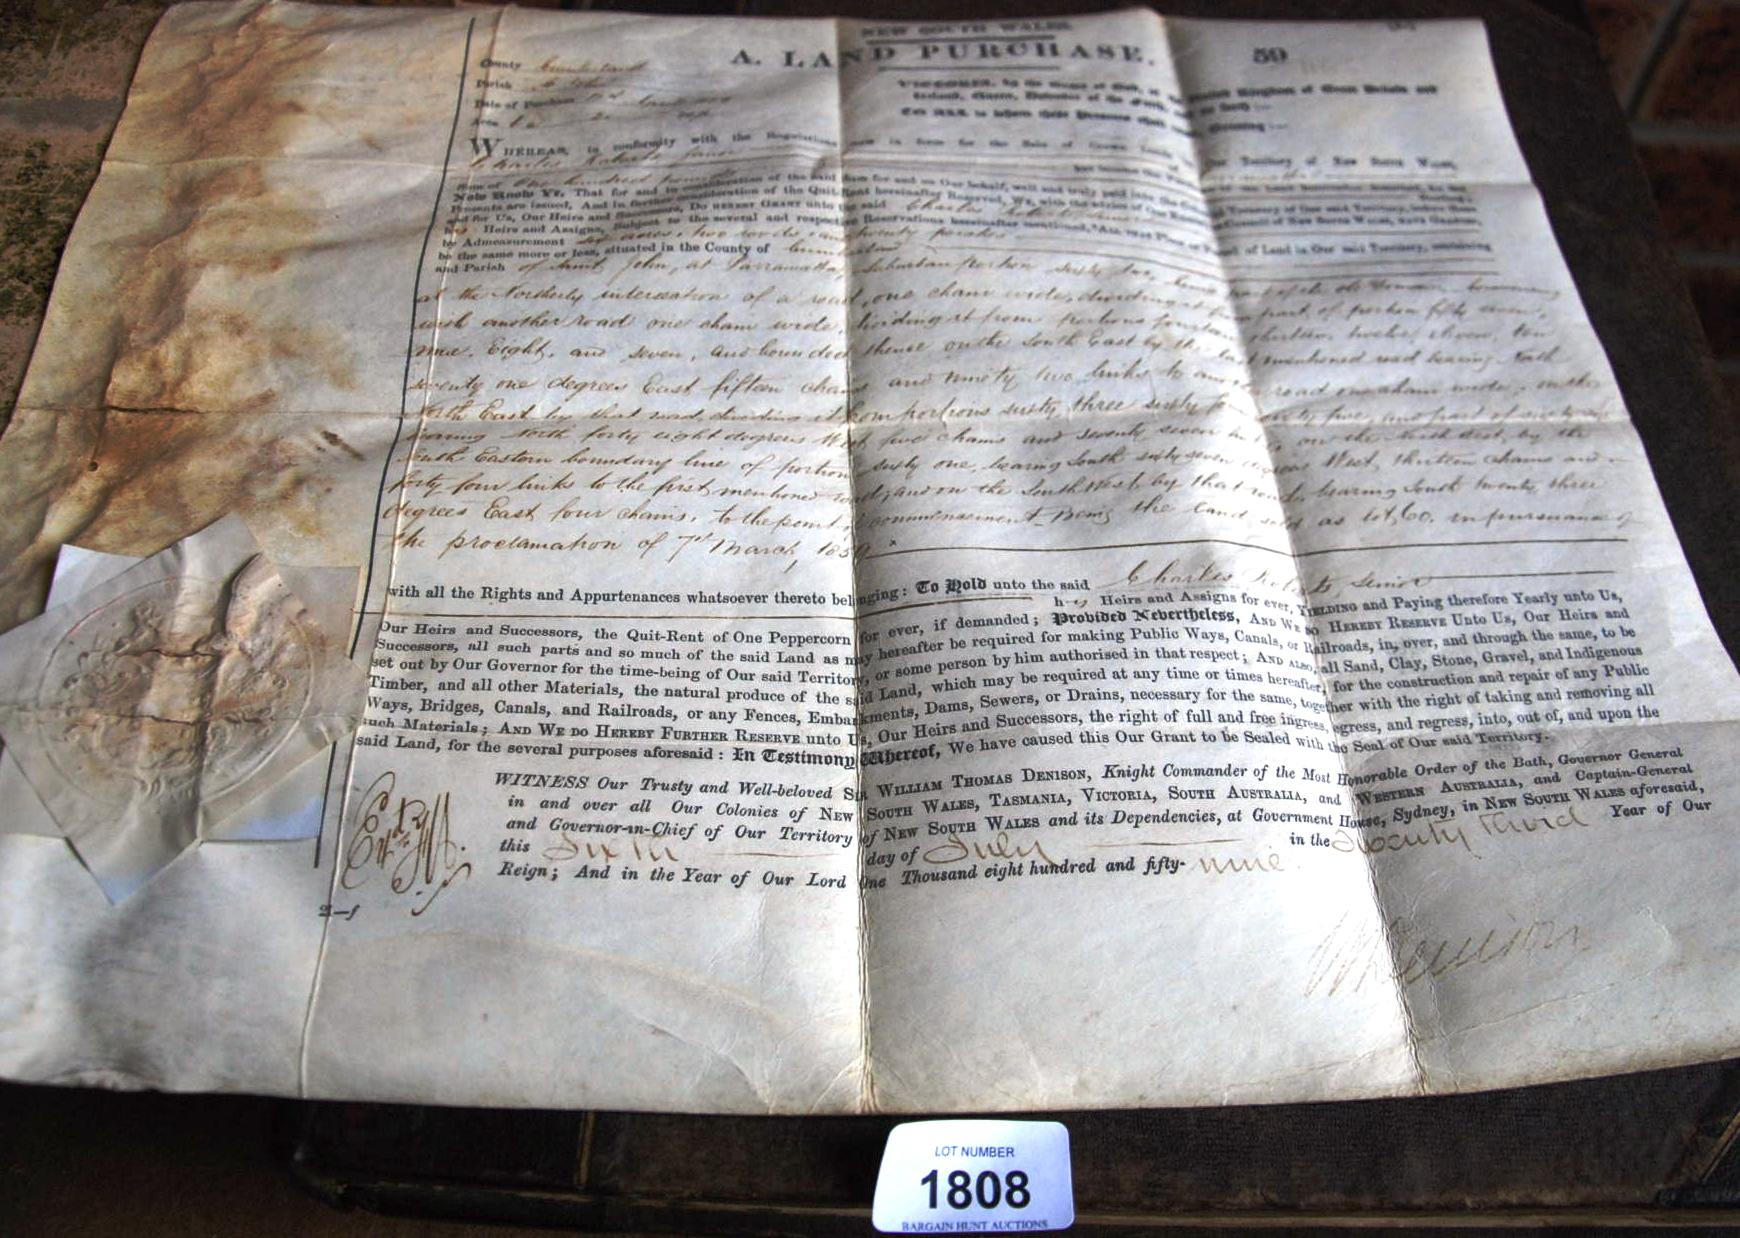 NEW SOUTH WALES.
A. LAND PURCHASE.
59
County Cumberland
Parish St John
Date of Purchase
Area
VICTORIA, by the Grace of God, of the United Kingdom of Great Britain and
Ireland, Queen, Defender of the Faith,
To All to whom these Presents shall come, Greeting:—
WHEREAS, in conformity with the Regulations now in force for the Sale of Crown Lands in Our Territory of New South Wales,
Charles Roberts Senior
Sum of One hundred pounds
Now Know Ye, That for and in consideration of the said Sum for and on Our behalf, well and truly paid into the
Presents are issued, And in further consideration of the Quit-Rent hereinafter Reserved, We, with the advice of Our
and for Us, Our Heirs and Successors, Do HEREBY GRANT unto the said Charles Roberts Senior
his Heirs and Assigns, Subject to the several and respective Reservations hereinafter mentioned, All that Piece or Parcel of Land in Our said Territory, containing
by Admeasurement six acres, two roods, and twenty perches
be the same more or less, situated in the County of Cumberland
and Parish of Saint John, at Parramatta, Suburban portion sixty two, being part of the old Domain - Commencing
at the Northerly intersection of a road, one chain wide, dividing it from part of portion fifty seven,
with another road one chain wide, dividing it from portions fourteen, thirteen, twelve, eleven, ten
nine, Eight, and seven, and bounded thence on the South East by the last mentioned road bearing North
seventy one degrees East fifteen chains and ninety two links to another road one chain wide, on the
North East by that road, dividing it from portions sixty three sixty four sixty five, and part of sixty six
bearing North forty eight degrees West, five chains and seventy seven links, on the North West, by the
South Eastern boundary line of portion sixty one, bearing South sixty seven degrees West, thirteen chains and
forty four links to the first mentioned road, and on the South West, by that road bearing South twenty three
degrees East four chains, to the point of commencement. Being the Land sold as lot 60. in pursuance of
the proclamation of 7th March, 1859
with all the Rights and Appurtenances whatsoever thereto belonging: To Hold unto the said Charles Roberts Senior
his Heirs and Assigns for ever, YIELDING and Paying therefore Yearly unto Us,
Our Heirs and Successors, the Quit-Rent of One Peppercorn for ever, if demanded; Provided Nevertheless, AND WE DO HEREBY RESERVE Unto Us, Our Heirs and
Successors, all such parts and so much of the said Land as may hereafter be required for making Public Ways, Canals, or Railroads, in, over, and through the same, to be
set out by Our Governor for the time-being of Our said Territory, or some person by him authorised in that respect; AND ALSO, all Sand, Clay, Stone, Gravel, and Indigenous
Timber, and all other Materials, the natural produce of the said Land, which may be required at any time or times hereafter, for the construction and repair of any Public
Ways, Bridges, Canals, and Railroads, or any Fences, Embankments, Dams, Sewers, or Drains, necessary for the same, together with the right of taking and removing all
such Materials; AND WE DO HEREBY FURTHER RESERVE unto Us, Our Heirs and Successors, the right of full and free ingress, egress, and regress, into, out of, and upon the
said Land, for the several purposes aforesaid: In Testimony Whereof, We have caused this Our Grant to be Sealed with the Seal of Our said Territory.
WITNESS Our Trusty and Well-beloved SIR WILLIAM THOMAS DENISON, Knight Commander of the Most Honorable Order of the Bath, Governor General
in and over all Our Colonies of NEW SOUTH WALES, TASMANIA, VICTORIA, SOUTH AUSTRALIA, and WESTERN AUSTRALIA, and Captain-General
and Governor-in-Chief of Our Territory of NEW SOUTH WALES and its Dependencies, at Government House, Sydney, in NEW SOUTH WALES aforesaid,
this Sixth day of July in the Twenty third Year of Our
Reign; And in the Year of Our Lord One Thousand eight hundred and fifty-nine.
W Denison
LOT NUMBER
1808
BARGAIN HUNT AUCTIONS